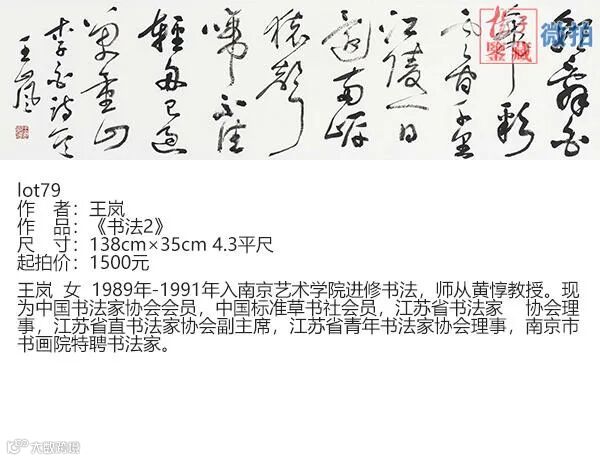 鑒藏
微拍
朝辭白
帝彩
雲間千里
江陵一日
還兩岸
猿聲
啼不住
輕舟已過
萬重山
李白詩
王嵐
lot79
作 者：王岚
作 品：《书法2》
尺 寸：138cm×35cm 4.3平尺
起拍价：1500元
王岚 女 1989年-1991年入南京艺术学院进修书法，师从黄惇教授。现
为中国书法家协会会员，中国标准草书社会员，江苏省书法家 协会理
事，江苏省直书法家协会副主席，江苏省青年书法家协会理事，南京市
书画院特聘书法家。
大数跨境